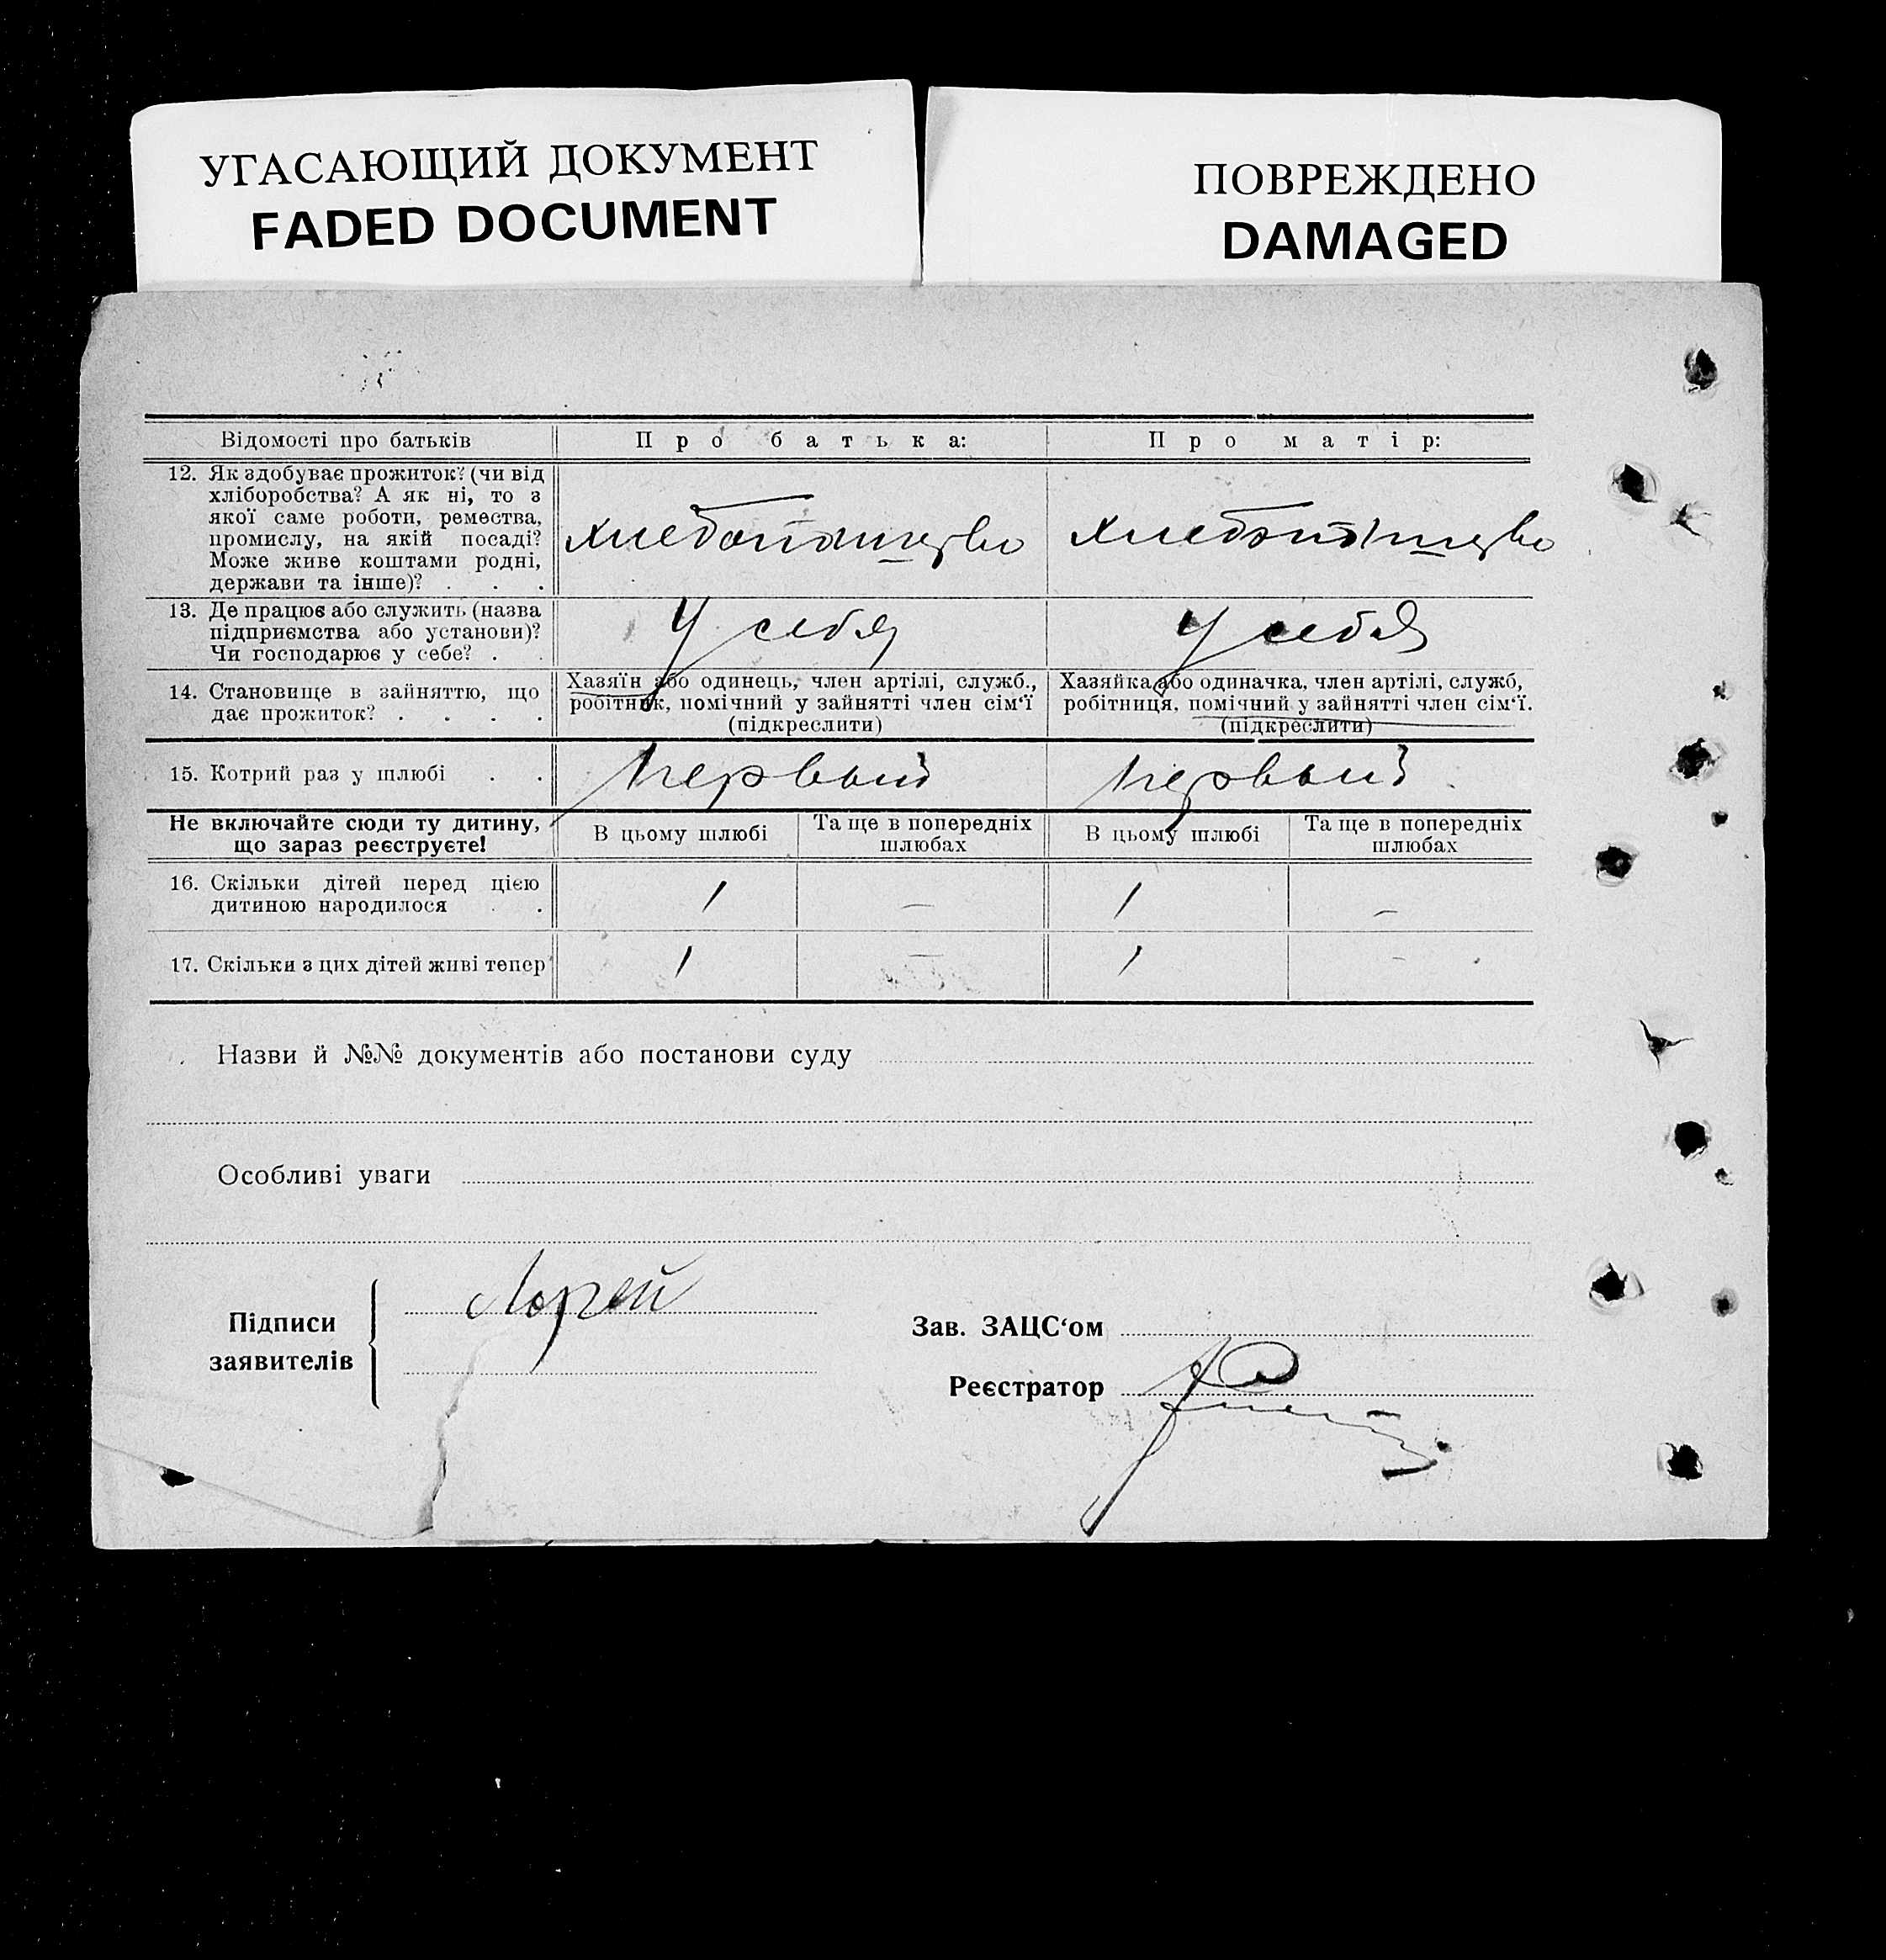 УГАСАЮЩИЙ ДОКУМЕНТ
FADED DOCUMENT
ПОВРЕЖДЕНО
DAMAGED
Відомості про батьків
Про батька:
Про матір:
12. Як здобуває прожиток? (чи від
хліборобства? А як ні, то з
якої саме роботи, ремества,
промислу, на якій посаді?
Може живе коштами родні,
держави та інше)? . . .
хлебопашество
хлебопашество
13. Де працює або служить (назва
підприємства або установи)?
Чи господарює у себе? . .
У себя
У себя
14. Становище в зайняттю, що
дає прожиток? . . . .
Хазяїн або одинець, член артілі, служб.,
робітник, помічний у зайнятті член сім'ї
(підкреслити)
Хазяйка або одиначка, член артілі, служб,
робітниця, помічний у зайнятті член сім'ї.
(підкреслити)
15. Котрий раз у шлюбі . .
первый
первый
Не включайте сюди ту дитину,
що зараз реєструєте!
В цьому шлюбі
Та ще в попередніх
шлюбах
В цьому шлюбі
Та ще в попередніх
шлюбах
16. Скільки дітей перед цією
дитиною народилося . .
1
–
1
–
17. Скільки з цих дітей живі тепер
1
–
1
–
Назви й №№ документів або постанови суду
Особливі уваги
Підписи
заявителів
Зав. ЗАЦС'ом
Реєстратор